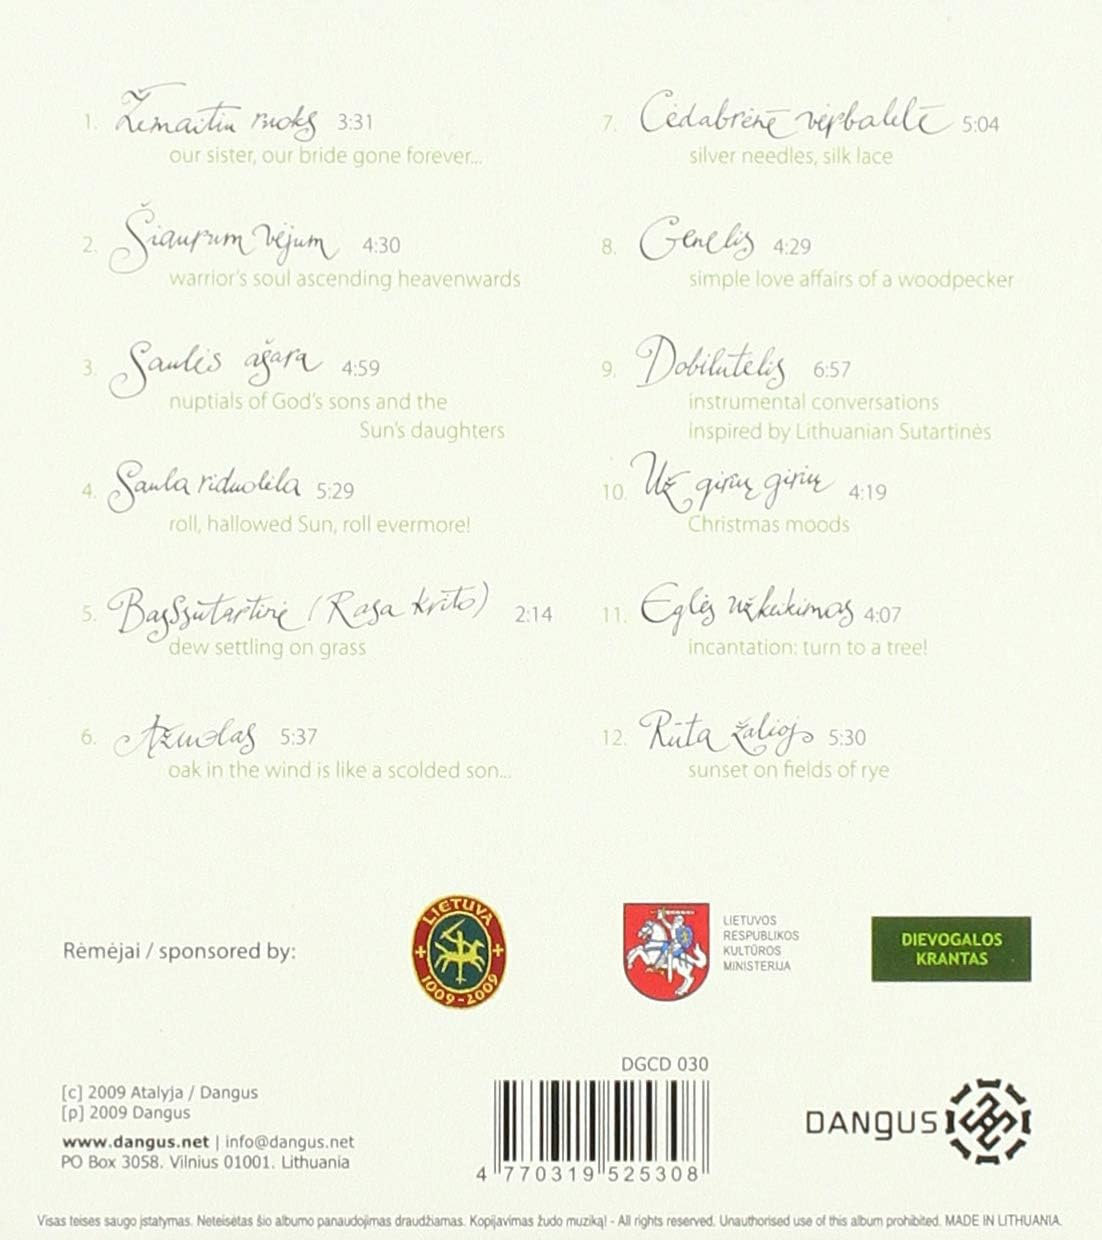 1. Žemaitiu ruoks 3:31
our sister, our bride gone forever...
2. Šiaurum vėjum 4:30
warrior's soul ascending heavenwards
3. Saulės ašara 4:59
nuptials of God's sons and the
Sun's daughters
4. Saula riduolėla 5:29
roll, hallowed Sun, roll evermore!
5. BasSsutartinė (Rasa krito) 2:14
dew settling on grass
6. Ažuolas 5:37
oak in the wind is like a scolded son...
7. Cėdabrėnė vėrbalėlė 5:04
silver needles, silk lace
8. Genelis 4:29
simple love affairs of a woodpecker
9. Dobilutėlis 6:57
instrumental conversations
inspired by Lithuanian Sutartinės
10. Už girių girių 4:19
Christmas moods
11. Eglės užkeikimas 4:07
incantation: turn to a tree!
12. Rūta žalioj 5:30
sunset on fields of rye
Rėmėjai / sponsored by:
LIETUVA
1009-2009
LIETUVOS
RESPUBLIKOS
KULTŪROS
MINISTERIJA
DIEVOGALOS
KRANTAS
DGCD 030
[c] 2009 Atalyja / Dangus
[p] 2009 Dangus
www.dangus.net | info@dangus.net
PO Box 3058. Vilnius 01001. Lithuania
4 770319 525308
DANGUS
Visas teises saugo įstatymas. Neteisėtas šio albumo panaudojimas draudžiamas. Kopijavimas žudo muziką! - All rights reserved. Unauthorised use of this album prohibited. MADE IN LITHUANIA.